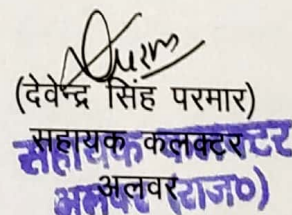 (देवेन्द्र सिंह परमार)
सहायक कलक्टर
सहायक कलक्टर
अलवर
अलवर (राज०)